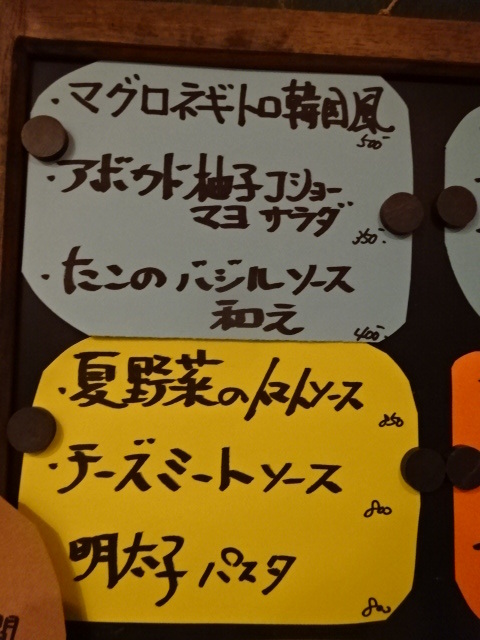 ・マグロネギトロ韓国風
500-
・アボカド柚子コショー
マヨサラダ
350-
・たこのバジルソース
和え
400-
・夏野菜のトマトソース
850
・チーズミートソース
800
明太子パスタ
800